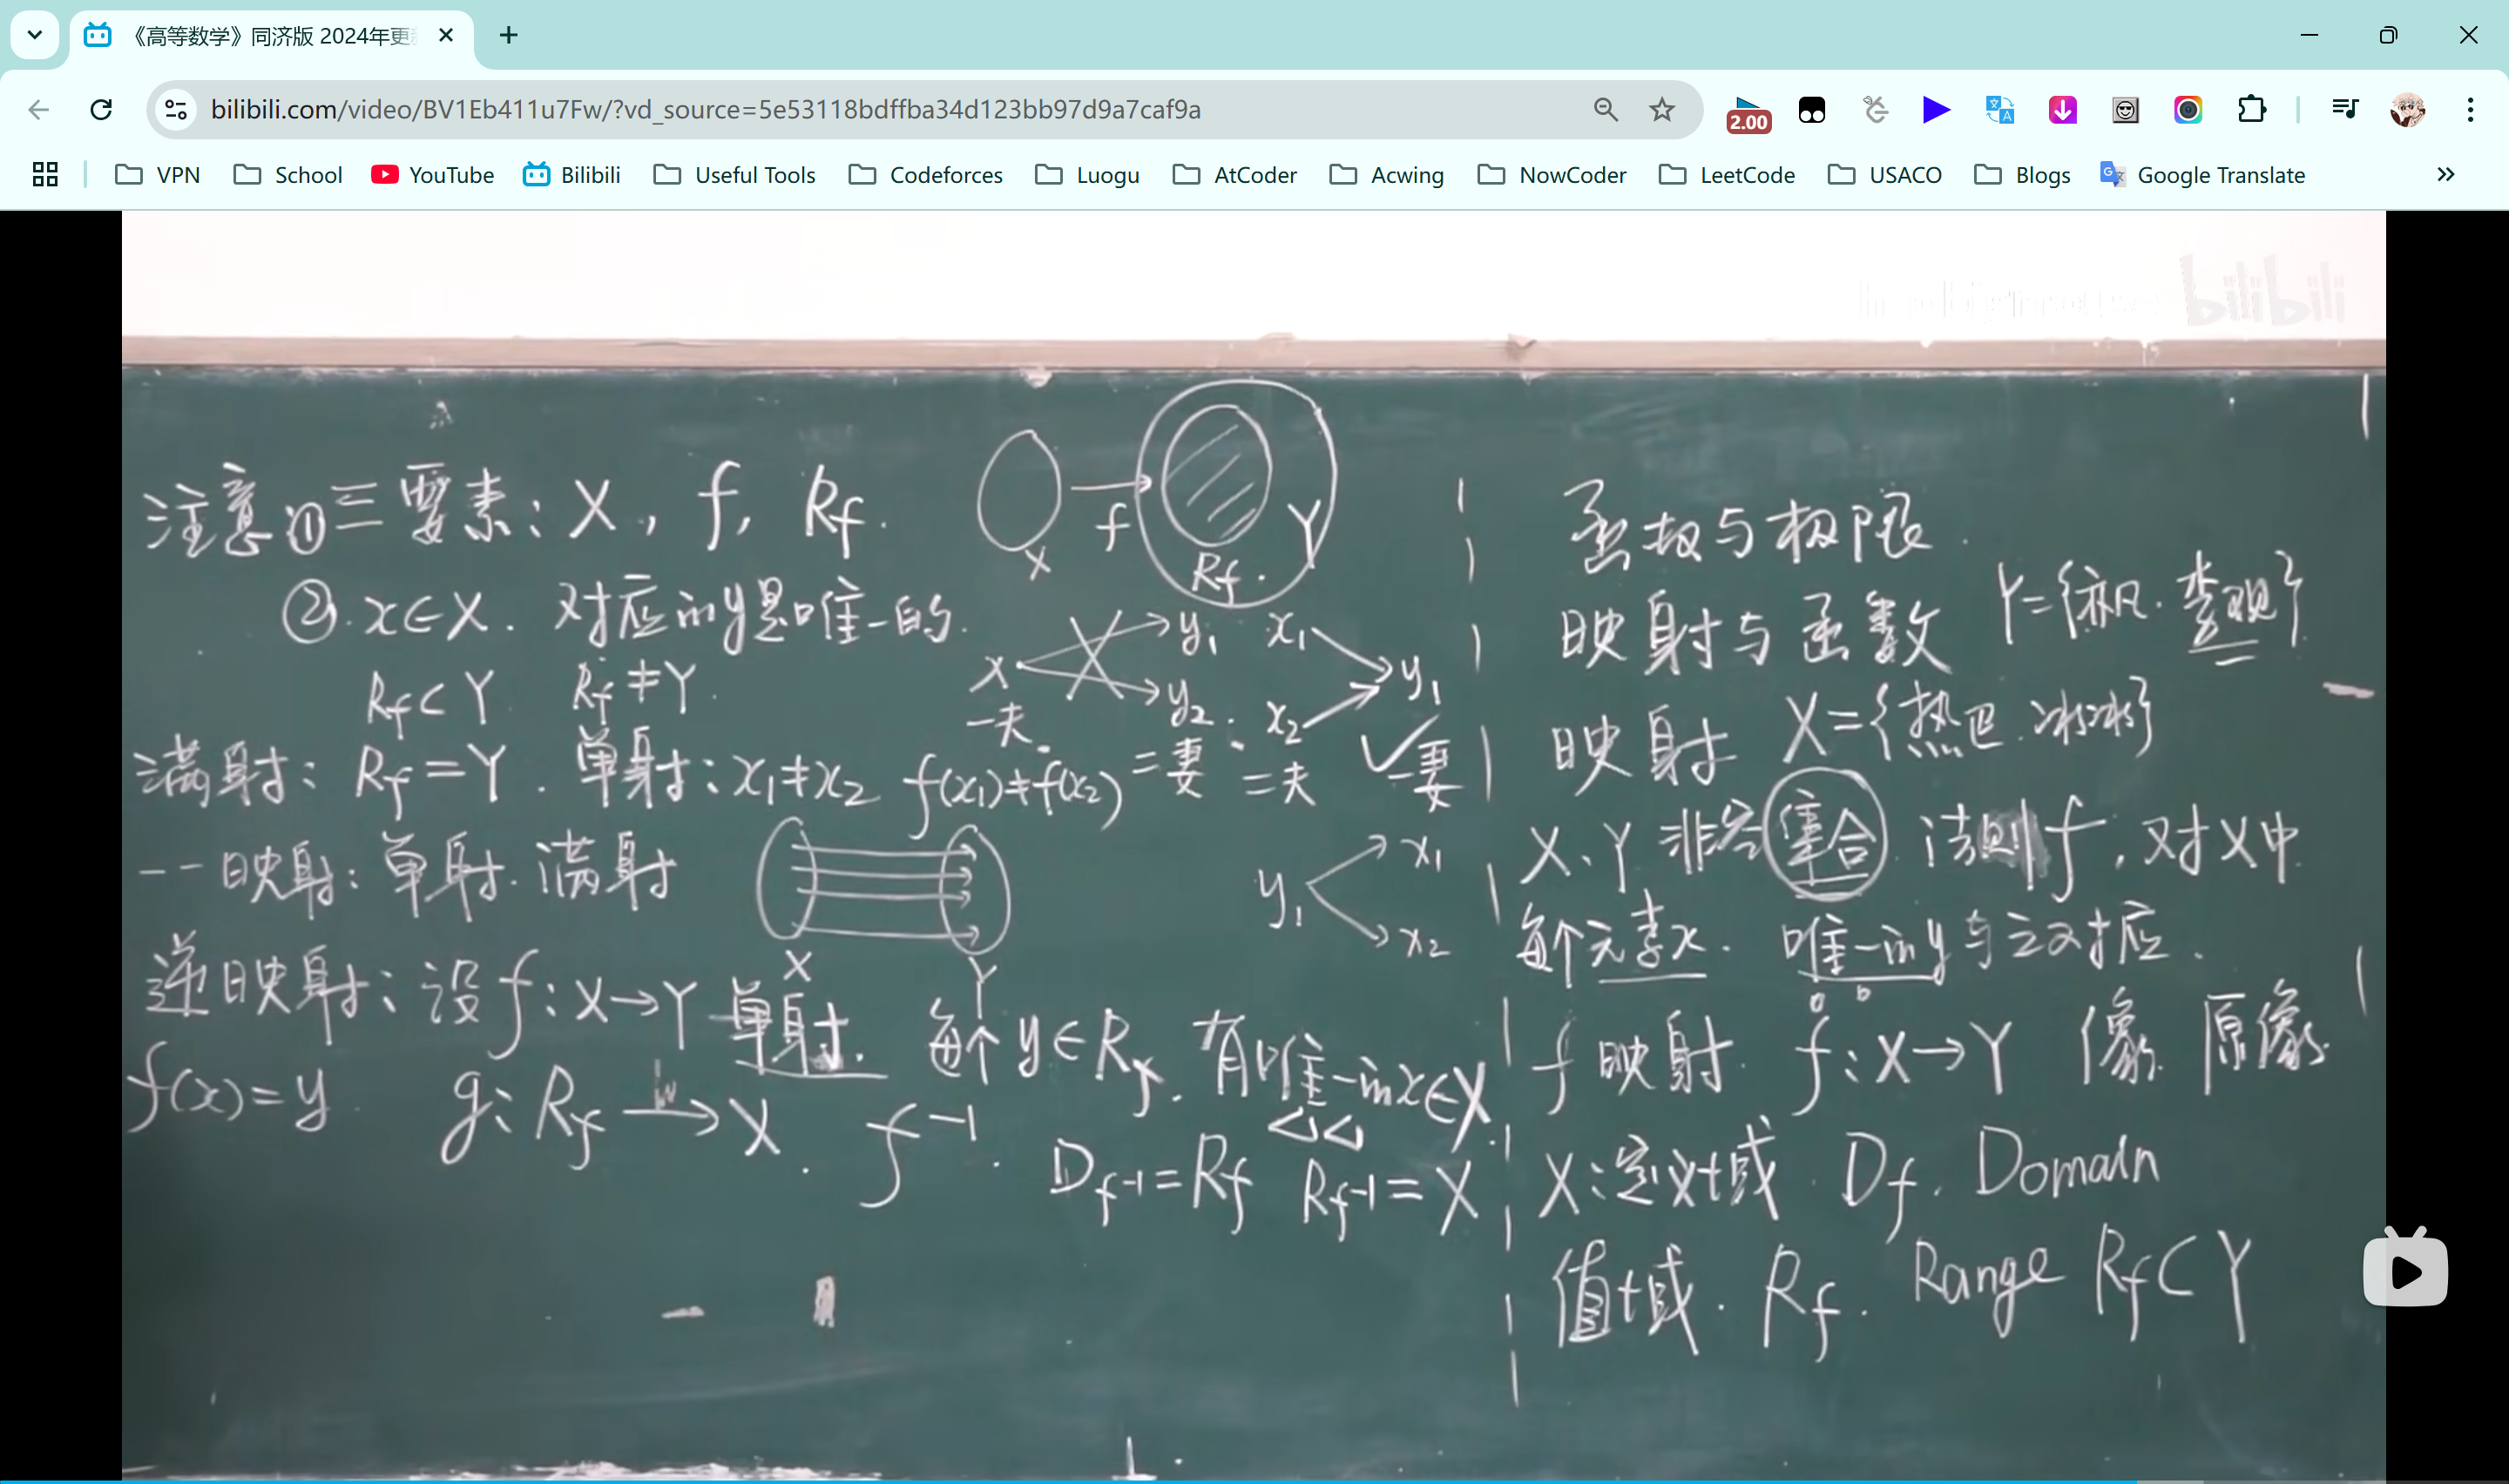 《高等数学》同济版 2024年更
bilibili.com/video/BV1Eb411u7Fw/?vd_source=5e53118bdffba34d123bb97d9a7caf9a
2.00
VPN School YouTube Bilibili Useful Tools Codeforces Luogu AtCoder Acwing NowCoder LeetCode USACO Blogs Google Translate
bilibili
注意:①三要素: X, f, Rf.
X f Rf. Y
②. x∈X. 对应的y是唯一的.
Rf⊂Y Rf≠Y.
x y₁ y₂. 一夫. 二妻.
x₁ x₂ y₁ 二夫 一妻
满射: Rf=Y. 单射: x₁≠x₂ f(x₁)≠f(x₂)
一一映射: 单射. 满射
X Y
y₁ x₁ x₂
逆映射: 设f: X→Y 单射. 每个y∈Rf. 有唯一的x∈X.
f(x)=y. g: Rf→X. f⁻¹. Df⁻¹=Rf Rf⁻¹=X
函数与极限.
映射与函数 Y={ }
映射 X={热巴. 冰冰}
X、Y 非空集合. 法则f, 对X中
每个元素x. 唯一的y与之对应.
f映射. f: X→Y 像. 原像.
X: 定义域. Df. Domain
值域. Rf. Range Rf⊂Y